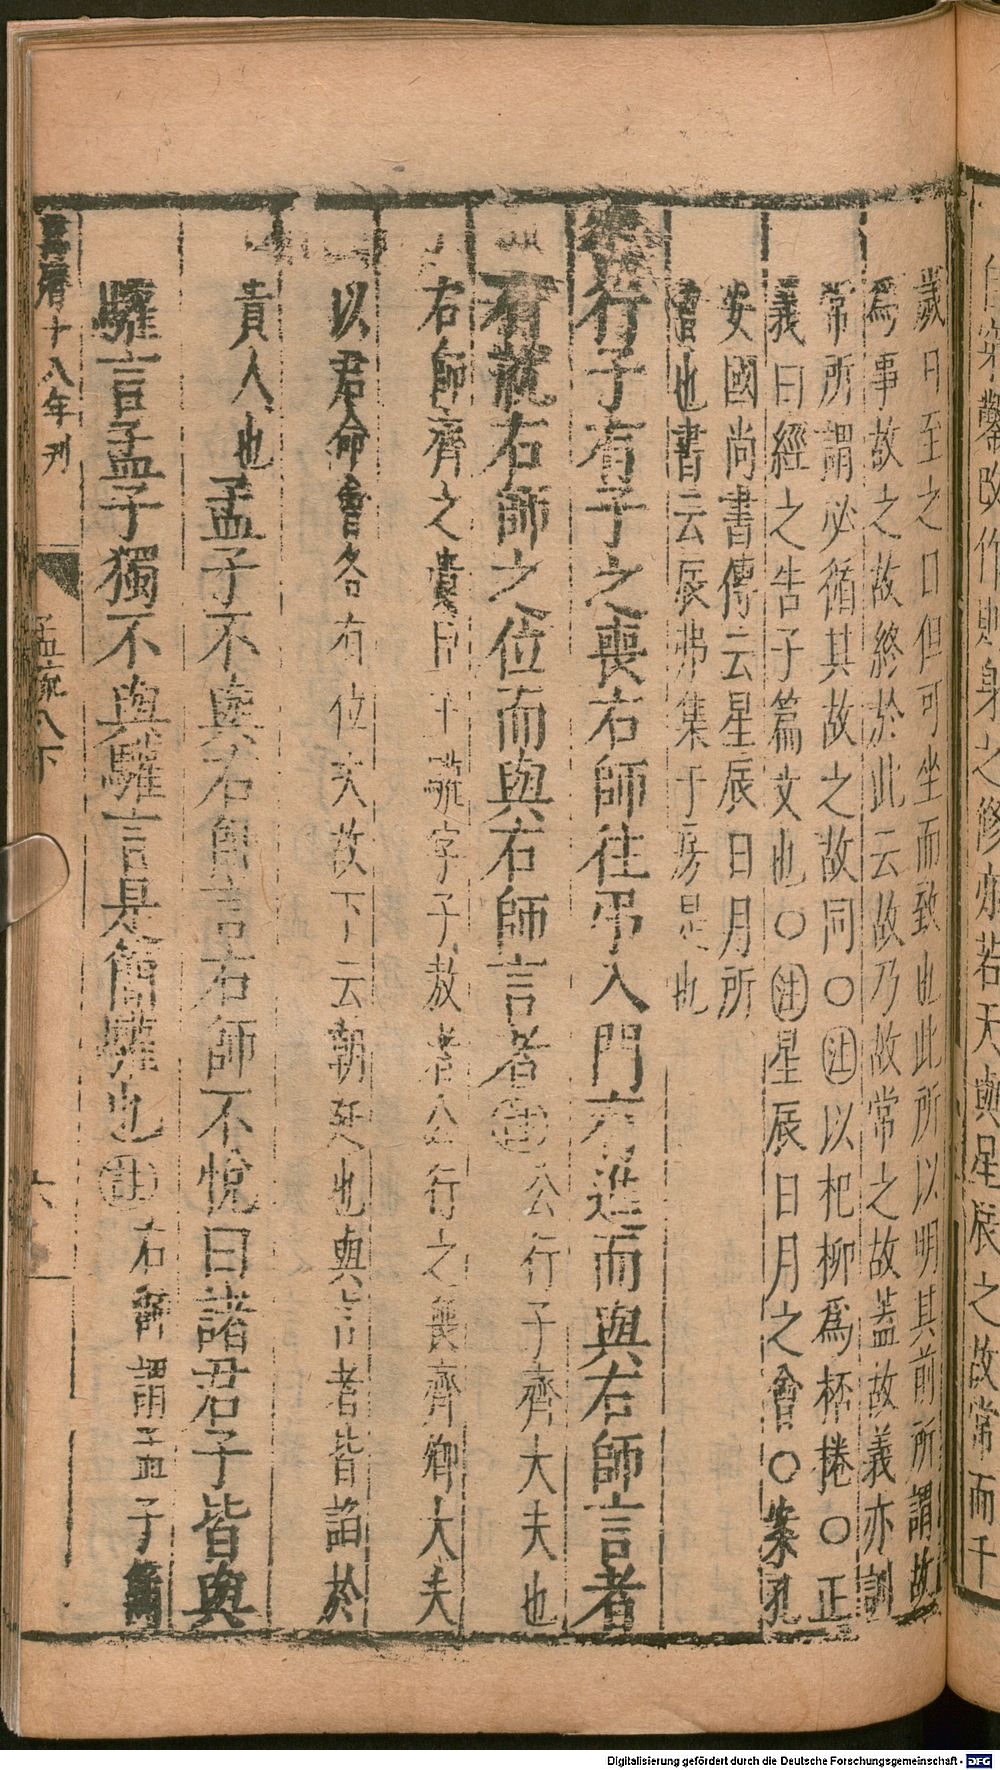 鑿改作則與之修亦若天與星辰之故常而千
歲日至之日但可坐而致也此所以明其前所謂故
爲事故之故終於此云故乃故常之故蓋故義亦訓
常所謂必循其故之故同〇註以杞柳爲桮棬〇正
義曰經之告子篇文也〇註星辰日月之會〇案孔
安國尚書傳云星辰日月所
會也書云辰弗集于房是也
公行子有子之喪右師往弔入門有進而與右師言者
有就右師之位而與右師言者註公行子齊大夫也
右師齊之貴臣王驩字子敖者公行之喪齊卿大夫
以君命會各有位次故下云朝廷也與言者皆諂於
貴人也孟子不與右師言右師不悅曰諸君子皆與
驩言孟子獨不與驩言是簡驩也註右師謂孟子簡
十八年刊
孟疏八下
六
Digitalisierung gefördert durch die Deutsche Forschungsgemeinschaft - DFG